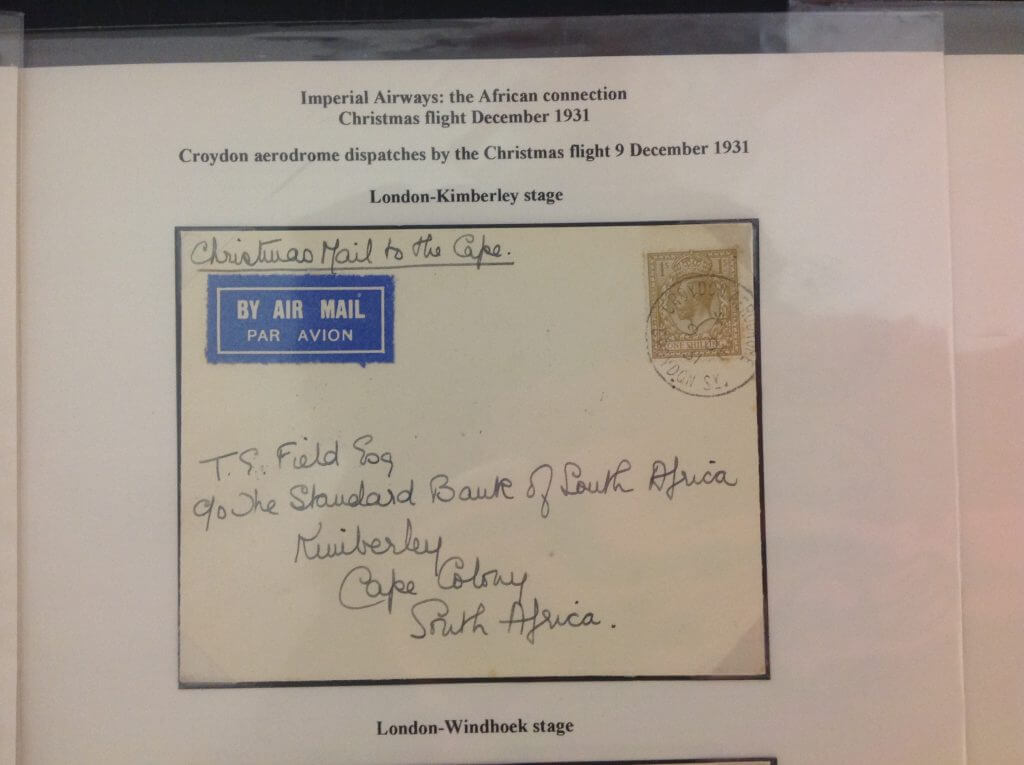 Imperial Airways: the African connection
Christmas flight December 1931
Croydon aerodrome dispatches by the Christmas flight 9 December 1931
London-Kimberley stage
Christmas Mail to the Cape.
1S 1S
BY AIR MAIL
PAR AVION
ONE SHILLING
CROYDON AERODROME
CROYDON SY.
T. E. Field Esq
c/o The Standard Bank of South Africa
Kimberley
Cape Colony
South Africa.
London-Windhoek stage